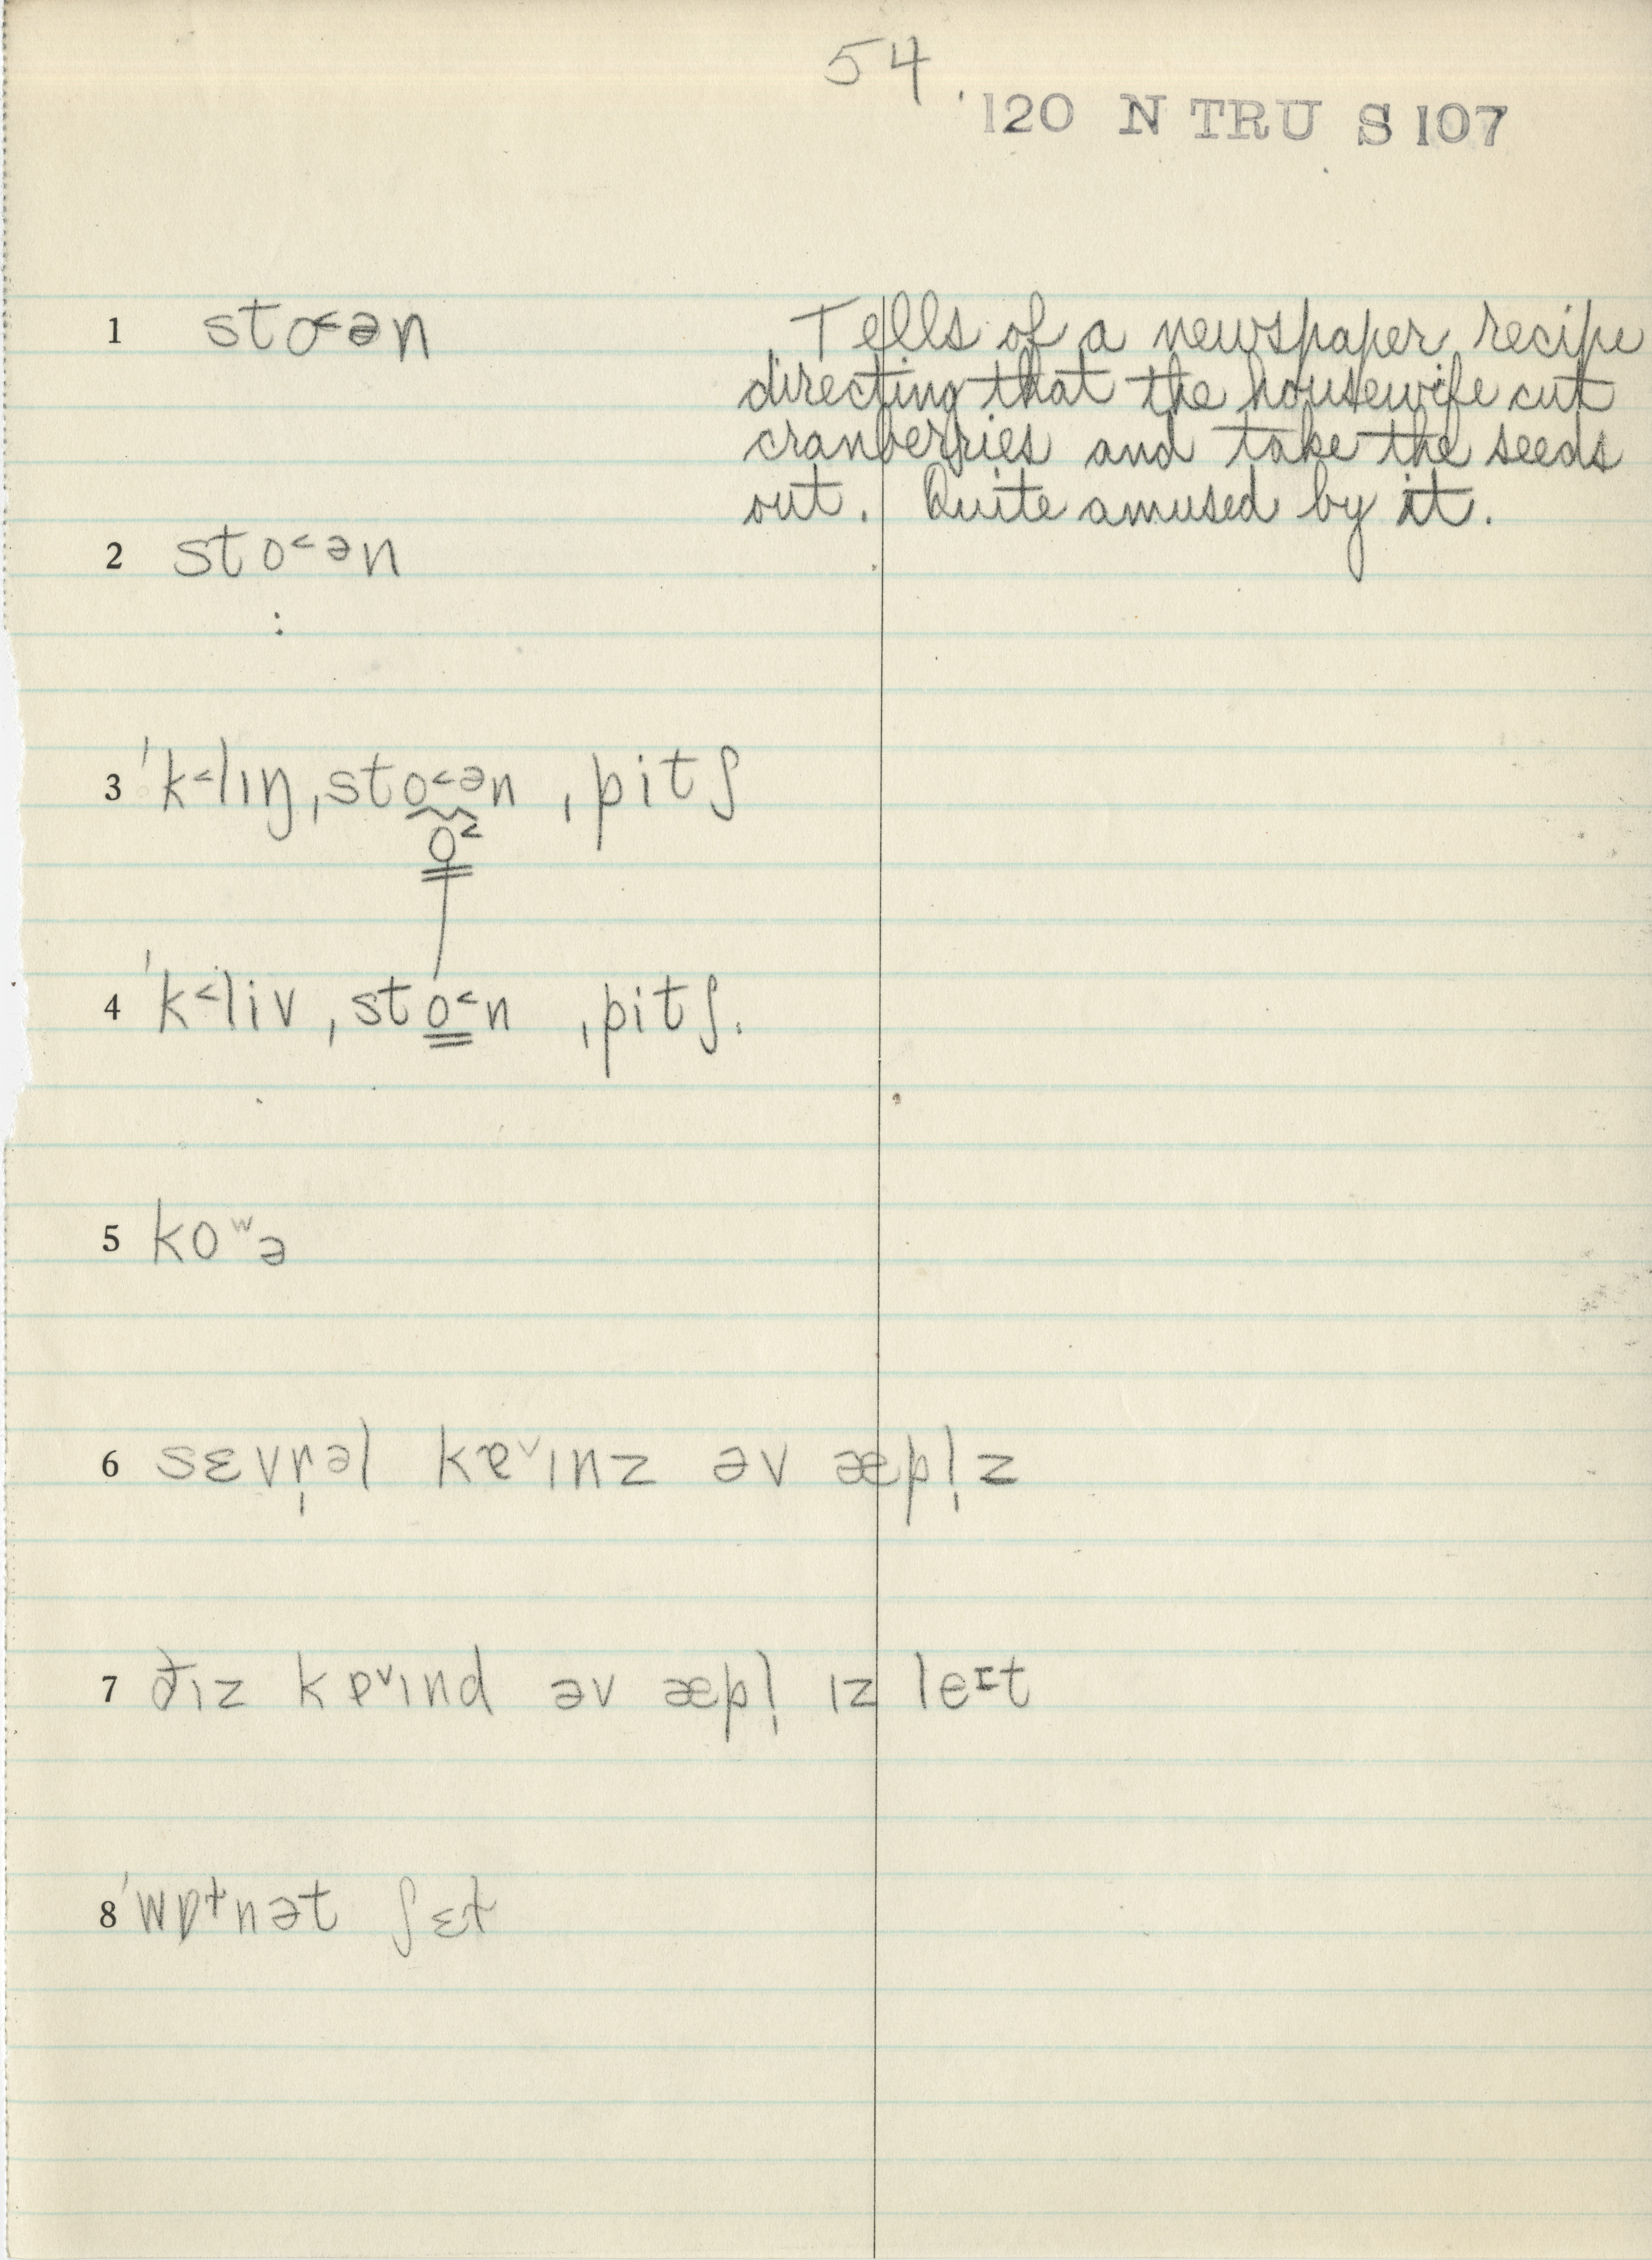 54.
120 N TRU S 107
1 sto˂ən
Tells of a newspaper recipe
directing that the housewife cut
cranberries and take the seeds
out. Quite amused by it.
2 sto˂ən
:
3 ˈk˂lɪŋ ˌsto˂ən ˌpitʃ
o˂
4 ˈk˂liv ˌsto˂n ˌpitʃ.
5 koʷə
6 sɛvr̩əl kɐ˅ɪnz əv æpl̩z
7 ðɪz kɐ˅ɪnd əv æpl̩ ɪz leɪt
8 ˈwɒtnət ʃɛt